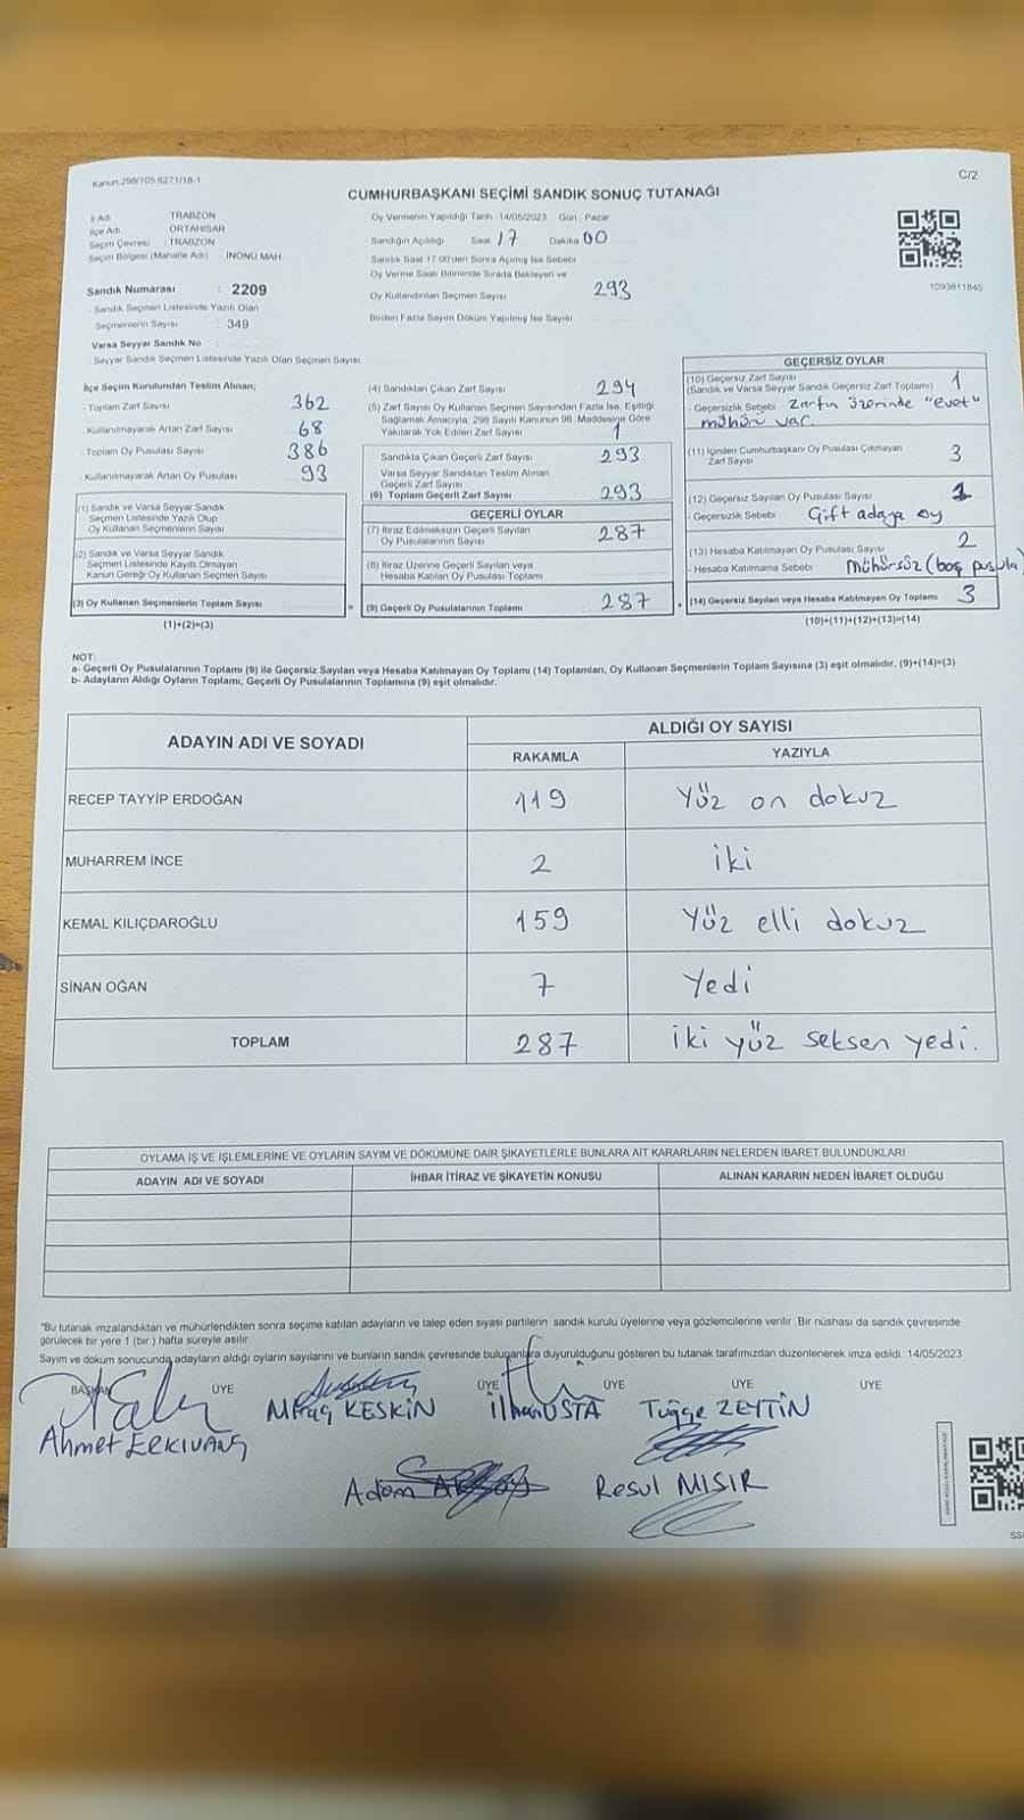 Kanun:298/105,6271/18-1
C/2
CUMHURBAŞKANI SEÇİMİ SANDIK SONUÇ TUTANAĞI
İl Adı : TRABZON
İlçe Adı : ORTAHİSAR
Seçim Çevresi : TRABZON
Seçim Bölgesi (Mahalle Adı) : İNÖNÜ MAH.
Sandık Numarası : 2209
Sandık Seçmen Listesinde Yazılı Olan
Seçmenlerin Sayısı : 349
Varsa Seyyar Sandık No
Seyyar Sandık Seçmen Listesinde Yazılı Olan Seçmen Sayısı:
Oy Vermenin Yapıldığı Tarih : 14/05/2023 Gün : Pazar
Sandığın Açıldığı Saat 17 Dakika 00
Sandık Saat 17.00'den Sonra Açılmış İse Sebebi
Oy Verme Saati Bitiminde Sırada Bekleyen ve
Oy Kullandırılan Seçmen Sayısı 293
Birden Fazla Sayım Döküm Yapılmış İse Sayısı
1093811845
İlçe Seçim Kurulundan Teslim Alınan;
- Toplam Zarf Sayısı 362
- Kullanılmayarak Artan Zarf Sayısı 68
Toplam Oy Pusulası Sayısı 386
Kullanılmayarak Artan Oy Pusulası 93
(1) Sandık ve Varsa Seyyar Sandık
Seçmen Listesinde Yazılı Olup
Oy Kullanan Seçmenlerin Sayısı
(2) Sandık ve Varsa Seyyar Sandık
Seçmen Listesinde Kayıtlı Olmayan
Kanun Gereği Oy Kullanan Seçmen Sayısı
(3) Oy Kullanan Seçmenlerin Toplam Sayısı
(1)+(2)=(3)
(4) Sandıktan Çıkan Zarf Sayısı 294
(5) Zarf Sayısı Oy Kullanan Seçmen Sayısından Fazla İse, Eşitliği
Sağlamak Amacıyla, 298 Sayılı Kanunun 98. Maddesine Göre
Yakılarak Yok Edilen Zarf Sayısı 1
Sandıkta Çıkan Geçerli Zarf Sayısı 293
Varsa Seyyar Sandıktan Teslim Alınan
Geçerli Zarf Sayısı
(6) Toplam Geçerli Zarf Sayısı 293
GEÇERLİ OYLAR
(7) İtiraz Edilmeksizin Geçerli Sayılan
Oy Pusulalarının Sayısı 287
(8) İtiraz Üzerine Geçerli Sayılan veya
Hesaba Katılan Oy Pusulası Toplamı
= (9) Geçerli Oy Pusulalarının Toplamı 287
GEÇERSİZ OYLAR
(10) Geçersiz Zarf Sayısı
(Sandık ve Varsa Seyyar Sandık Geçersiz Zarf Toplamı) 1
- Geçersizlik Sebebi : Zarfın üzerinde "evet"
mühürü var.
(11) İçinden Cumhurbaşkanı Oy Pusulası Çıkmayan
Zarf Sayısı 3
(12) Geçersiz Sayılan Oy Pusulası Sayısı 1
- Geçersizlik Sebebi : Çift adaya oy
(13) Hesaba Katılmayan Oy Pusulası Sayısı 2
- Hesaba Katılmama Sebebi : mühürsüz (boş pusula)
+ (14) Geçersiz Sayılan veya Hesaba Katılmayan Oy Toplamı 3
(10)+(11)+(12)+(13)=(14)
NOT:
a- Geçerli Oy Pusulalarının Toplamı (9) ile Geçersiz Sayılan veya Hesaba Katılmayan Oy Toplamı (14) Toplamları, Oy Kullanan Seçmenlerin Toplam Sayısına (3) eşit olmalıdır. (9)+(14)=(3)
b- Adayların Aldığı Oyların Toplamı, Geçerli Oy Pusulalarının Toplamına (9) eşit olmalıdır.
ADAYIN ADI VE SOYADI ALDIĞI OY SAYISI
RAKAMLA YAZIYLA
RECEP TAYYİP ERDOĞAN 119 Yüz on dokuz
MUHARREM İNCE 2 iki
KEMAL KILIÇDAROĞLU 159 Yüz elli dokuz
SİNAN OĞAN 7 Yedi
TOPLAM 287 iki yüz seksen yedi.
OYLAMA İŞ VE İŞLEMLERİNE VE OYLARIN SAYIM VE DÖKÜMÜNE DAİR ŞİKAYETLERLE BUNLARA AİT KARARLARIN NELERDEN İBARET BULUNDUKLARI
ADAYIN ADI VE SOYADI İHBAR İTİRAZ VE ŞİKAYETİN KONUSU ALINAN KARARIN NEDEN İBARET OLDUĞU
"Bu tutanak imzalandıktan ve mühürlendikten sonra seçime katılan adayların ve talep eden siyasi partilerin sandık kurulu üyelerine veya gözlemcilerine verilir. Bir nüshası da sandık çevresinde
görülecek bir yere 1 (bir) hafta süreyle asılır.
Sayım ve döküm sonucunda adayların aldığı oyların sayılarını ve bunların sandık çevresinde bulunanlara duyurulduğunu gösteren bu tutanak tarafımızdan düzenlenerek imza edildi. 14/05/2023
BAŞKAN ÜYE ÜYE ÜYE ÜYE ÜYE
Ahmet ERKIVANÇ
Miraç KESKİN
İlhan USTA
Tuğçe ZEYTİN
Adem
Resul MISIR